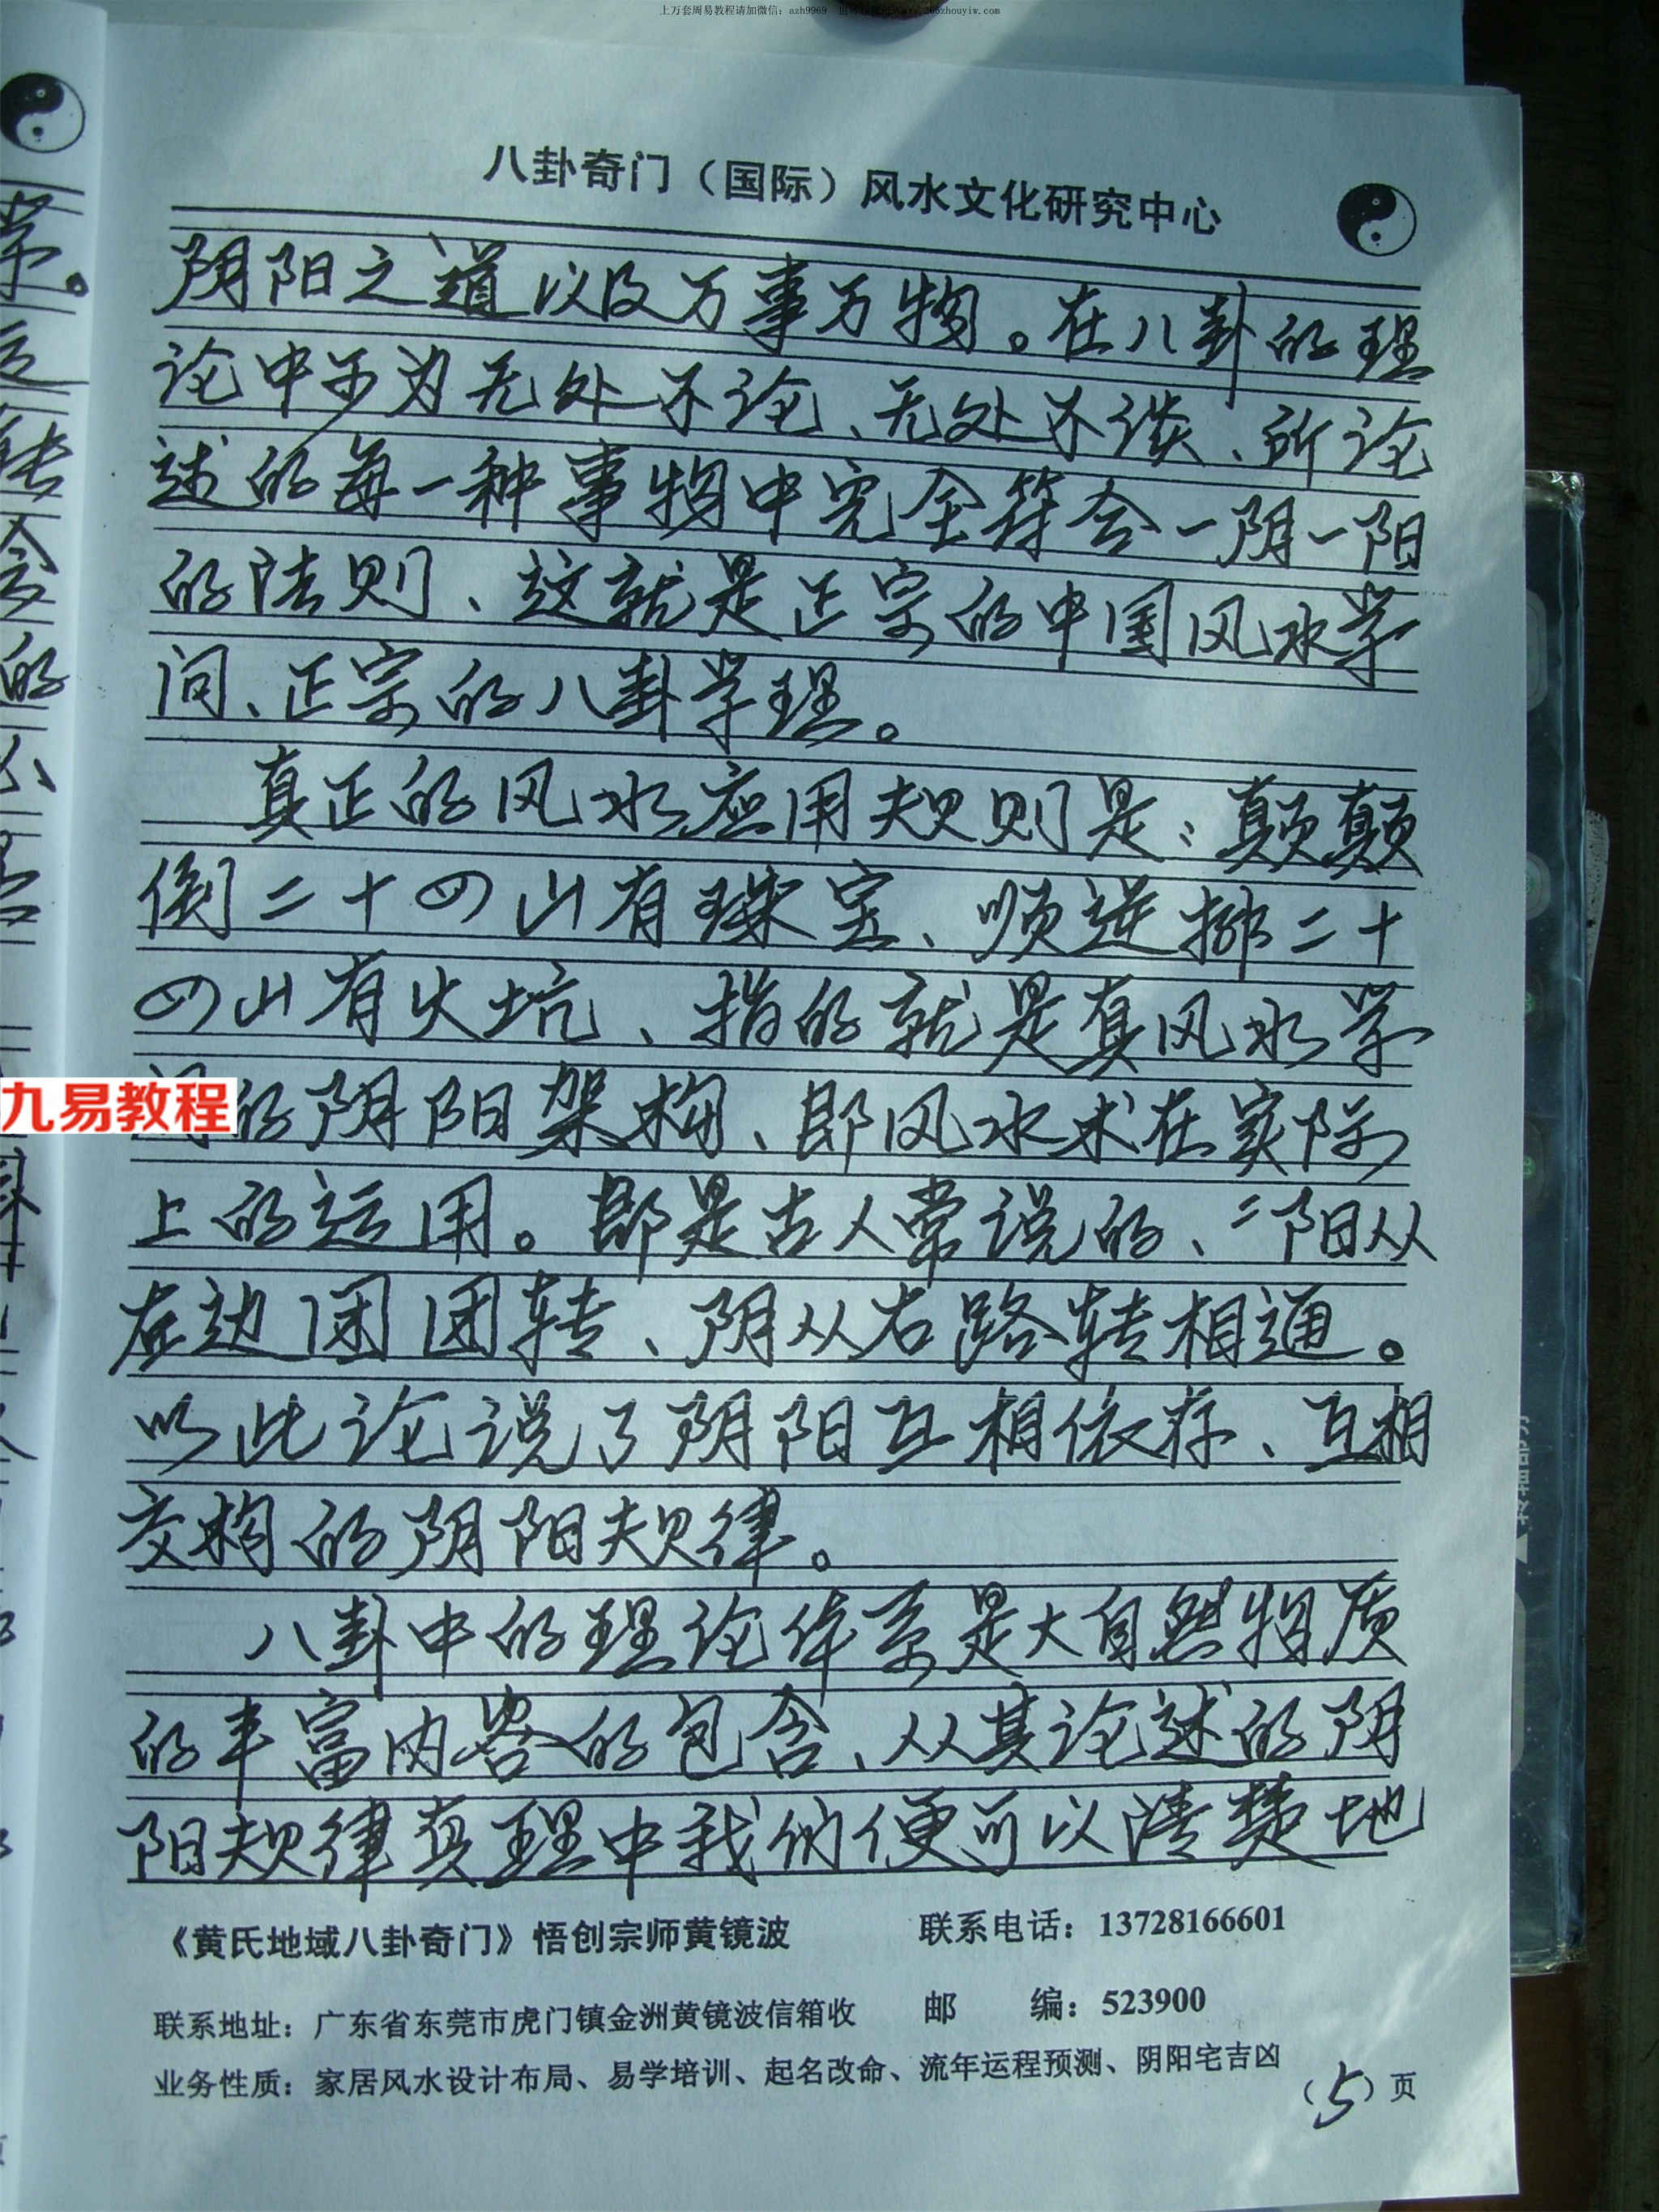 上万套周易教程请加微信：azh9969
八卦奇门（国际）风水文化研究中心
阴阳之道以及万事万物。在八卦的理
论中可为无处不论、无处不谈、所论
述的每一种事物中完全符合一阴一阳
的法则、这就是正宗的中国风水学
问、正宗的八卦学理。
真正的风水应用规则是：颠颠
倒二十四山有珠宝、顺逆排二十
四山有火坑、指的就是真风水学
的阴阳架构、即风水术在实际
上的运用。即是古人常说的、阳从
左边团团转、阴从右路转相通。
以此论说了阴阳互相依存、互相
交构的阴阳规律。
八卦中的理论体系是大自然物质
的丰富内容的包含、从其论述的阴
阳规律真理中我们便可以清楚地
九易教程
《黄氏地域八卦奇门》悟创宗师黄镜波 联系电话：13728166601
联系地址：广东省东莞市虎门镇金洲黄镜波信箱收 邮 编：523900
业务性质：家居风水设计布局、易学培训、起名改命、流年运程预测、阴阳宅吉凶
（5）页